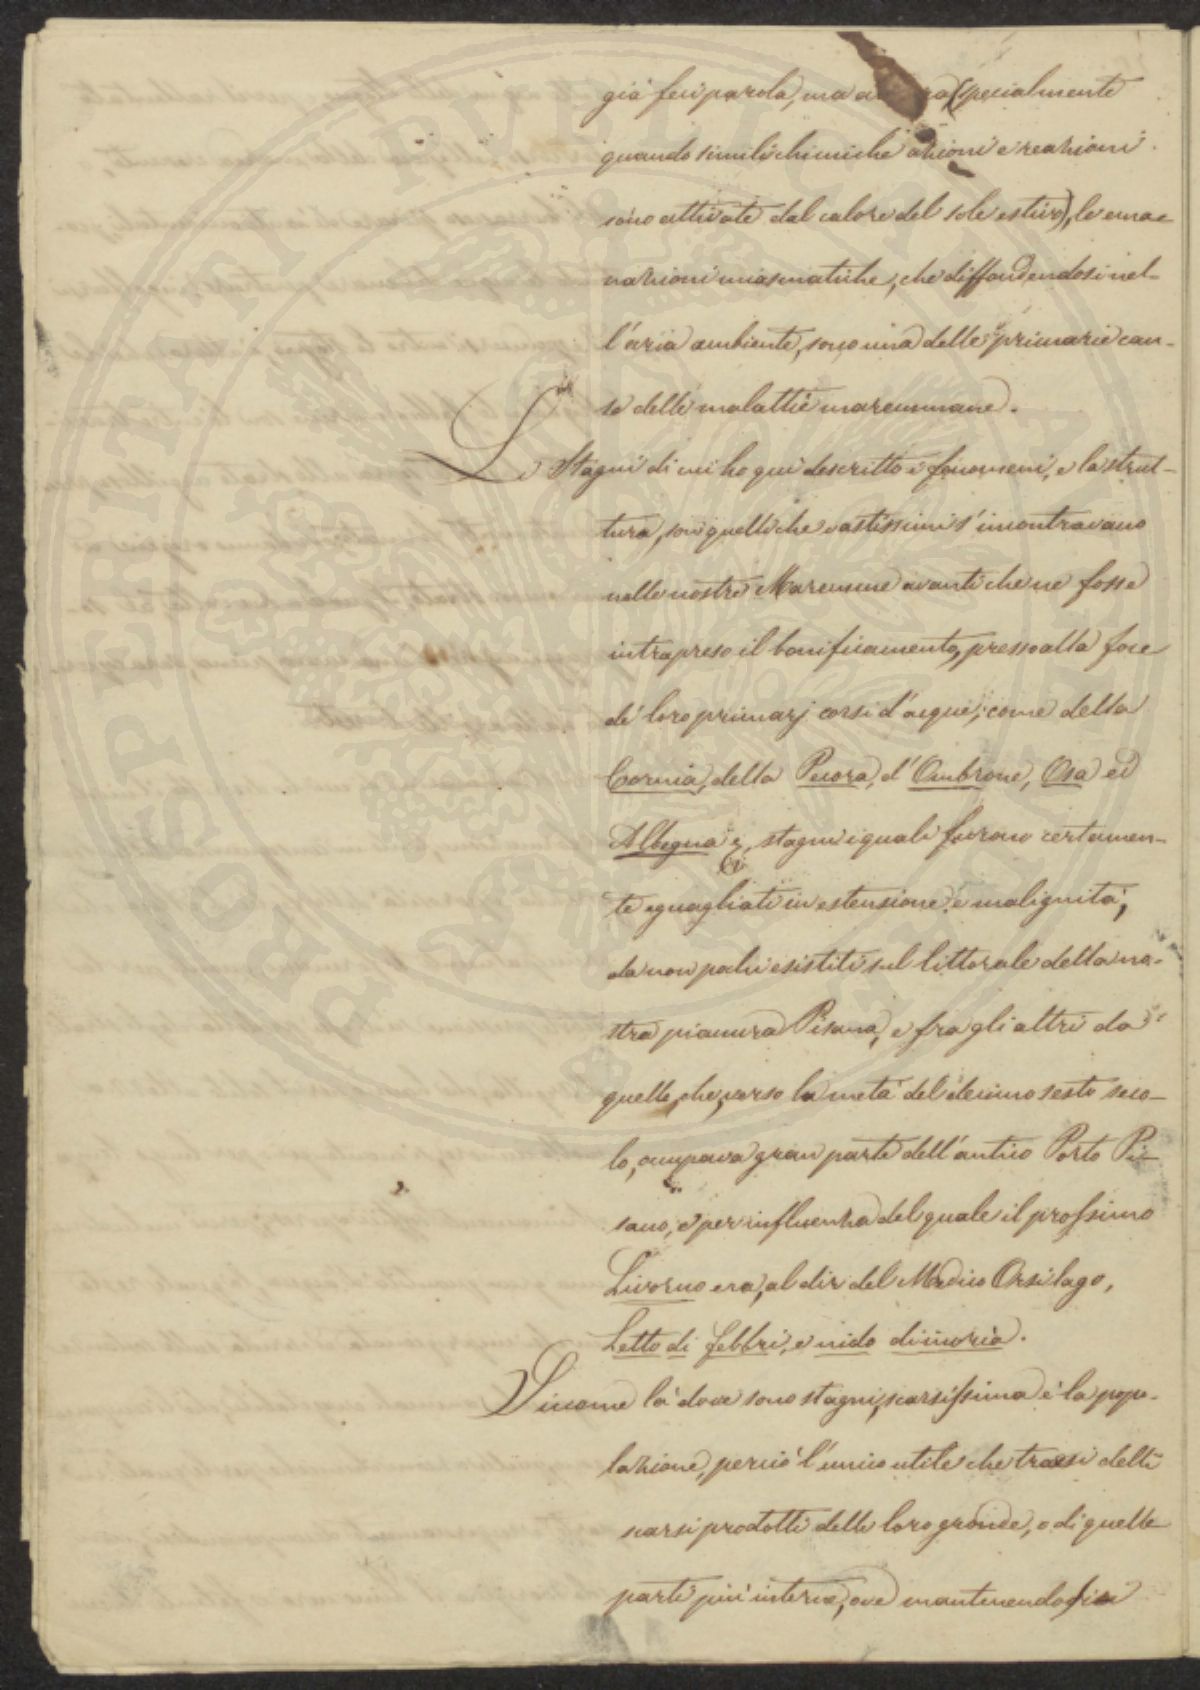 già feci parola, ma (specialmente
quando simili chimiche azioni e reazioni
sono attivate dal calore del sole estivo), le ema-
nazioni miasmatiche, che diffondendosi nel-
l'aria ambiente, sono una delle primarie cau-
se delle malattie maremmane.
Li Stagni di cui ho qui descritto i fenomeni, e la strut-
tura, son quelli che vastissimi s'incontravano
nelle nostre Maremme avanti che ne fosse
intrapreso il bonificamento, presso alla foce
de' loro primarj corsi d'acque, come della
Cornia, della Pecora, d'Ombrone, Osa ed
Albegna, stagni i quali furono certamen-
te eguagliati in estensione e malignità,
da non pochi esistiti sul littorale della no-
stra pianura Pisana, e fra gli altri da
quello, che, verso la metà del decimo sesto seco-
lo, occupava gran parte dell'antico Porto Pi-
sano, e per influenza del quale il prossimo
Livorno era, al dir del Medico Orsilago,
Letto di febbri, e nido di moria.
Siccome là dove sono stagni, scarsissima è la popo-
lazione, perciò l'unico utile che traesi delli
scarsi prodotti delle loro gronde, o di quelle
parti più interne, ove mantenendosi